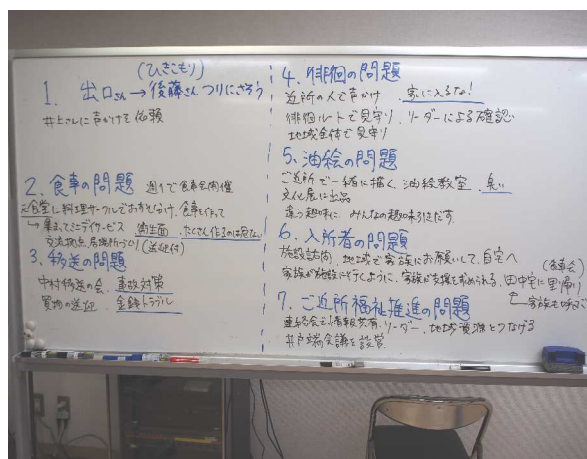 (ひきこもり)
1. 出口さん→後藤さん つりにさそう
井上さんに声かけを依頼
2. 食事の問題 週1で食事会開催
元食堂に料理サークルでおすそわけ、食事を作って
集まってミニデイサービス 衛生面 たくさん作るのは危ない
交流拠点、居場所づくり(送迎付)
3. 移送の問題
中村移送の会、事故対策
買物の送迎 金銭トラブル
4. 徘徊の問題
近所の人で声かけ 家に入るな!
徘徊ルートで見守り、リーダーによる確認
地域全体で見守り
5. 油絵の問題
ご近所で一緒に描く、油絵教室、臭い
文化展に出品
違う趣味に みんなの趣味引きだす
6. 入所者の問題
施設訪問、地域で家族にお願いして、自宅へ
(食事会)
家族が施設に行くように、家族が支援を求められる、田中宅に里帰り
家族も呼ぶ
7. ご近所福祉推進の問題
連絡会で情報共有、リーダー、地域資源をつなげる
井戸端会議を設営